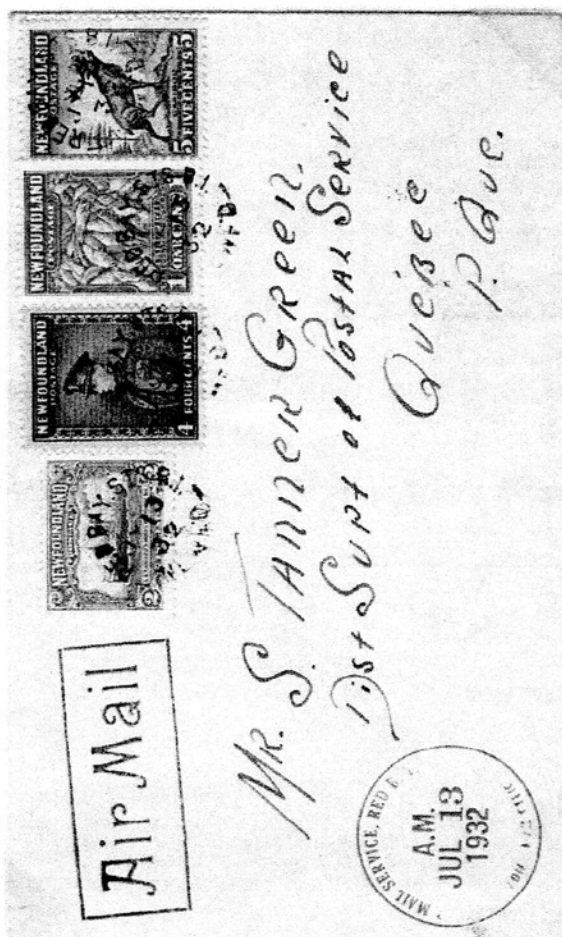 Air Mail
NEWFOUNDLAND
NEWFOUNDLAND
POSTAGE
4 FOUR CENTS 4
NEWFOUNDLAND
POSTAGE
NEWFOUNDLAND
POSTAGE
5 FIVE CENTS 5
MR. S. TANNER GREEN.
Dist Supt of Postal Service
QUÉBEC
P. QUE.
MAIL SERVICE, RED
A.M.
JUL 13
1932